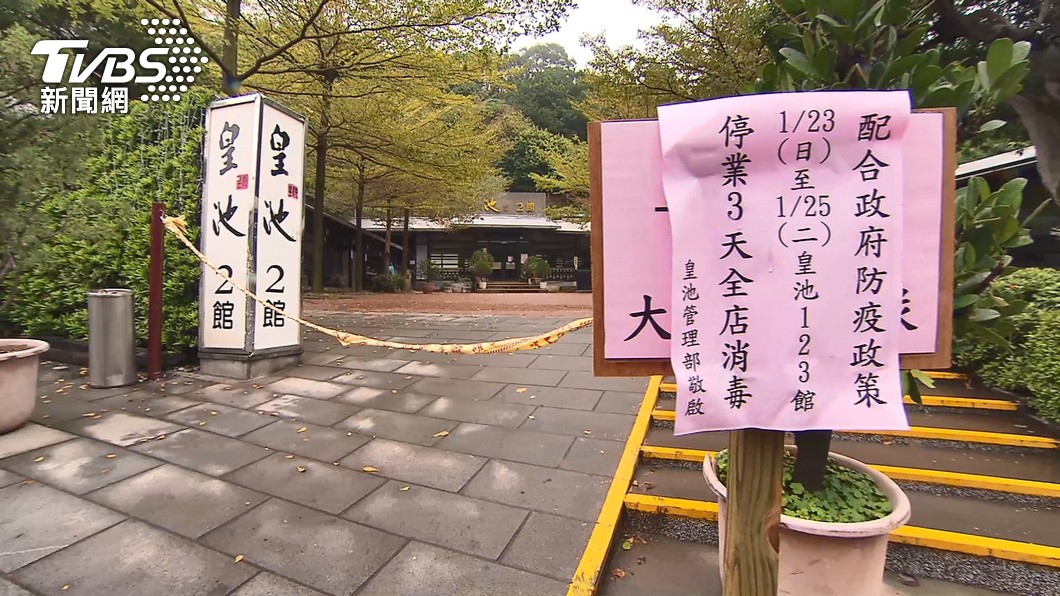 TVBS
新聞網
皇池2館
皇池2館
池 2館
配合政府防疫政策
1/23(日)至1/25(二)皇池123館
停業3天全店消毒
皇池管理部敬啟
大